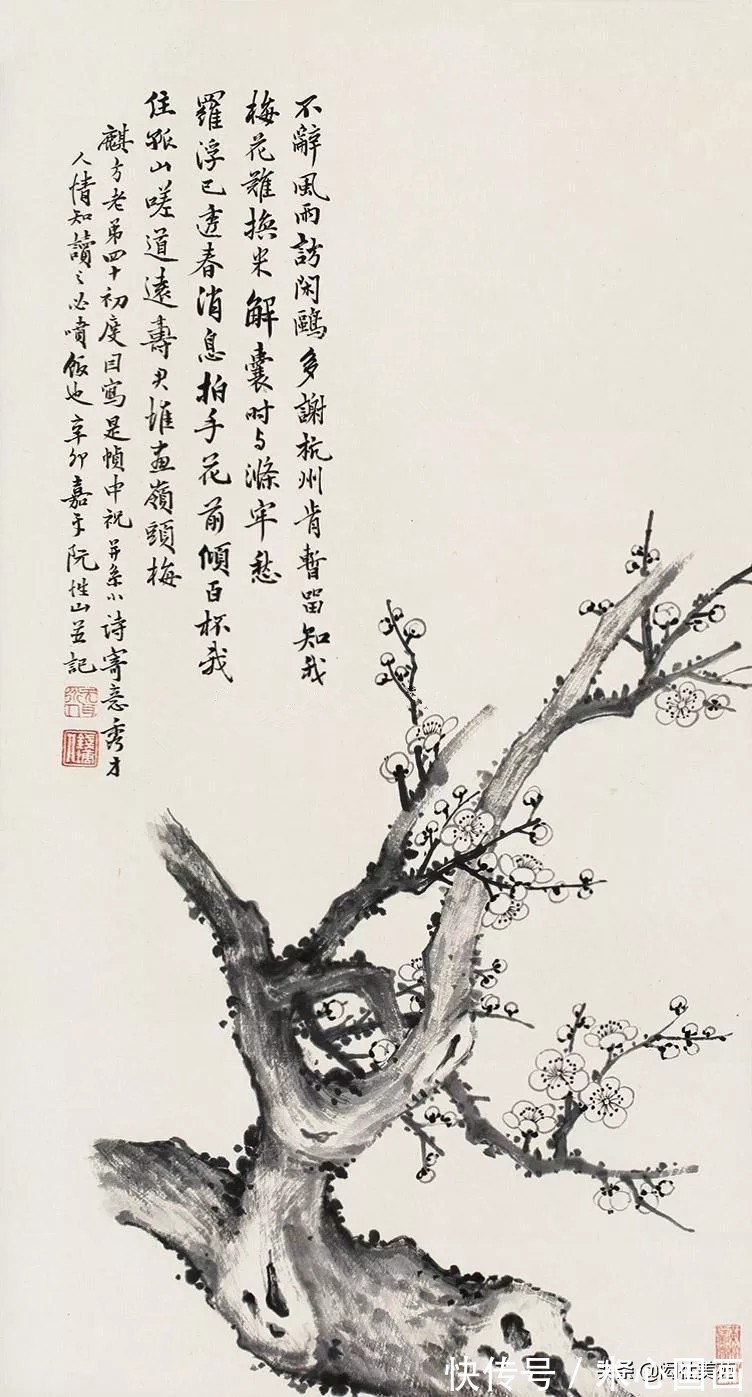 不辭風雨訪閑鷗多謝杭州肯暫留知我
梅花難換米解囊时与滌牢愁
羅浮已透春消息拍手花前傾百杯我
住孤山嗟道遠壽君惟画嶺頭梅
麒方老弟四十初度曰寫是幀申祝并系小诗寄意秀才
人情知讀之必噴飯也辛卯嘉平阮性山并記
快传号/
头条@